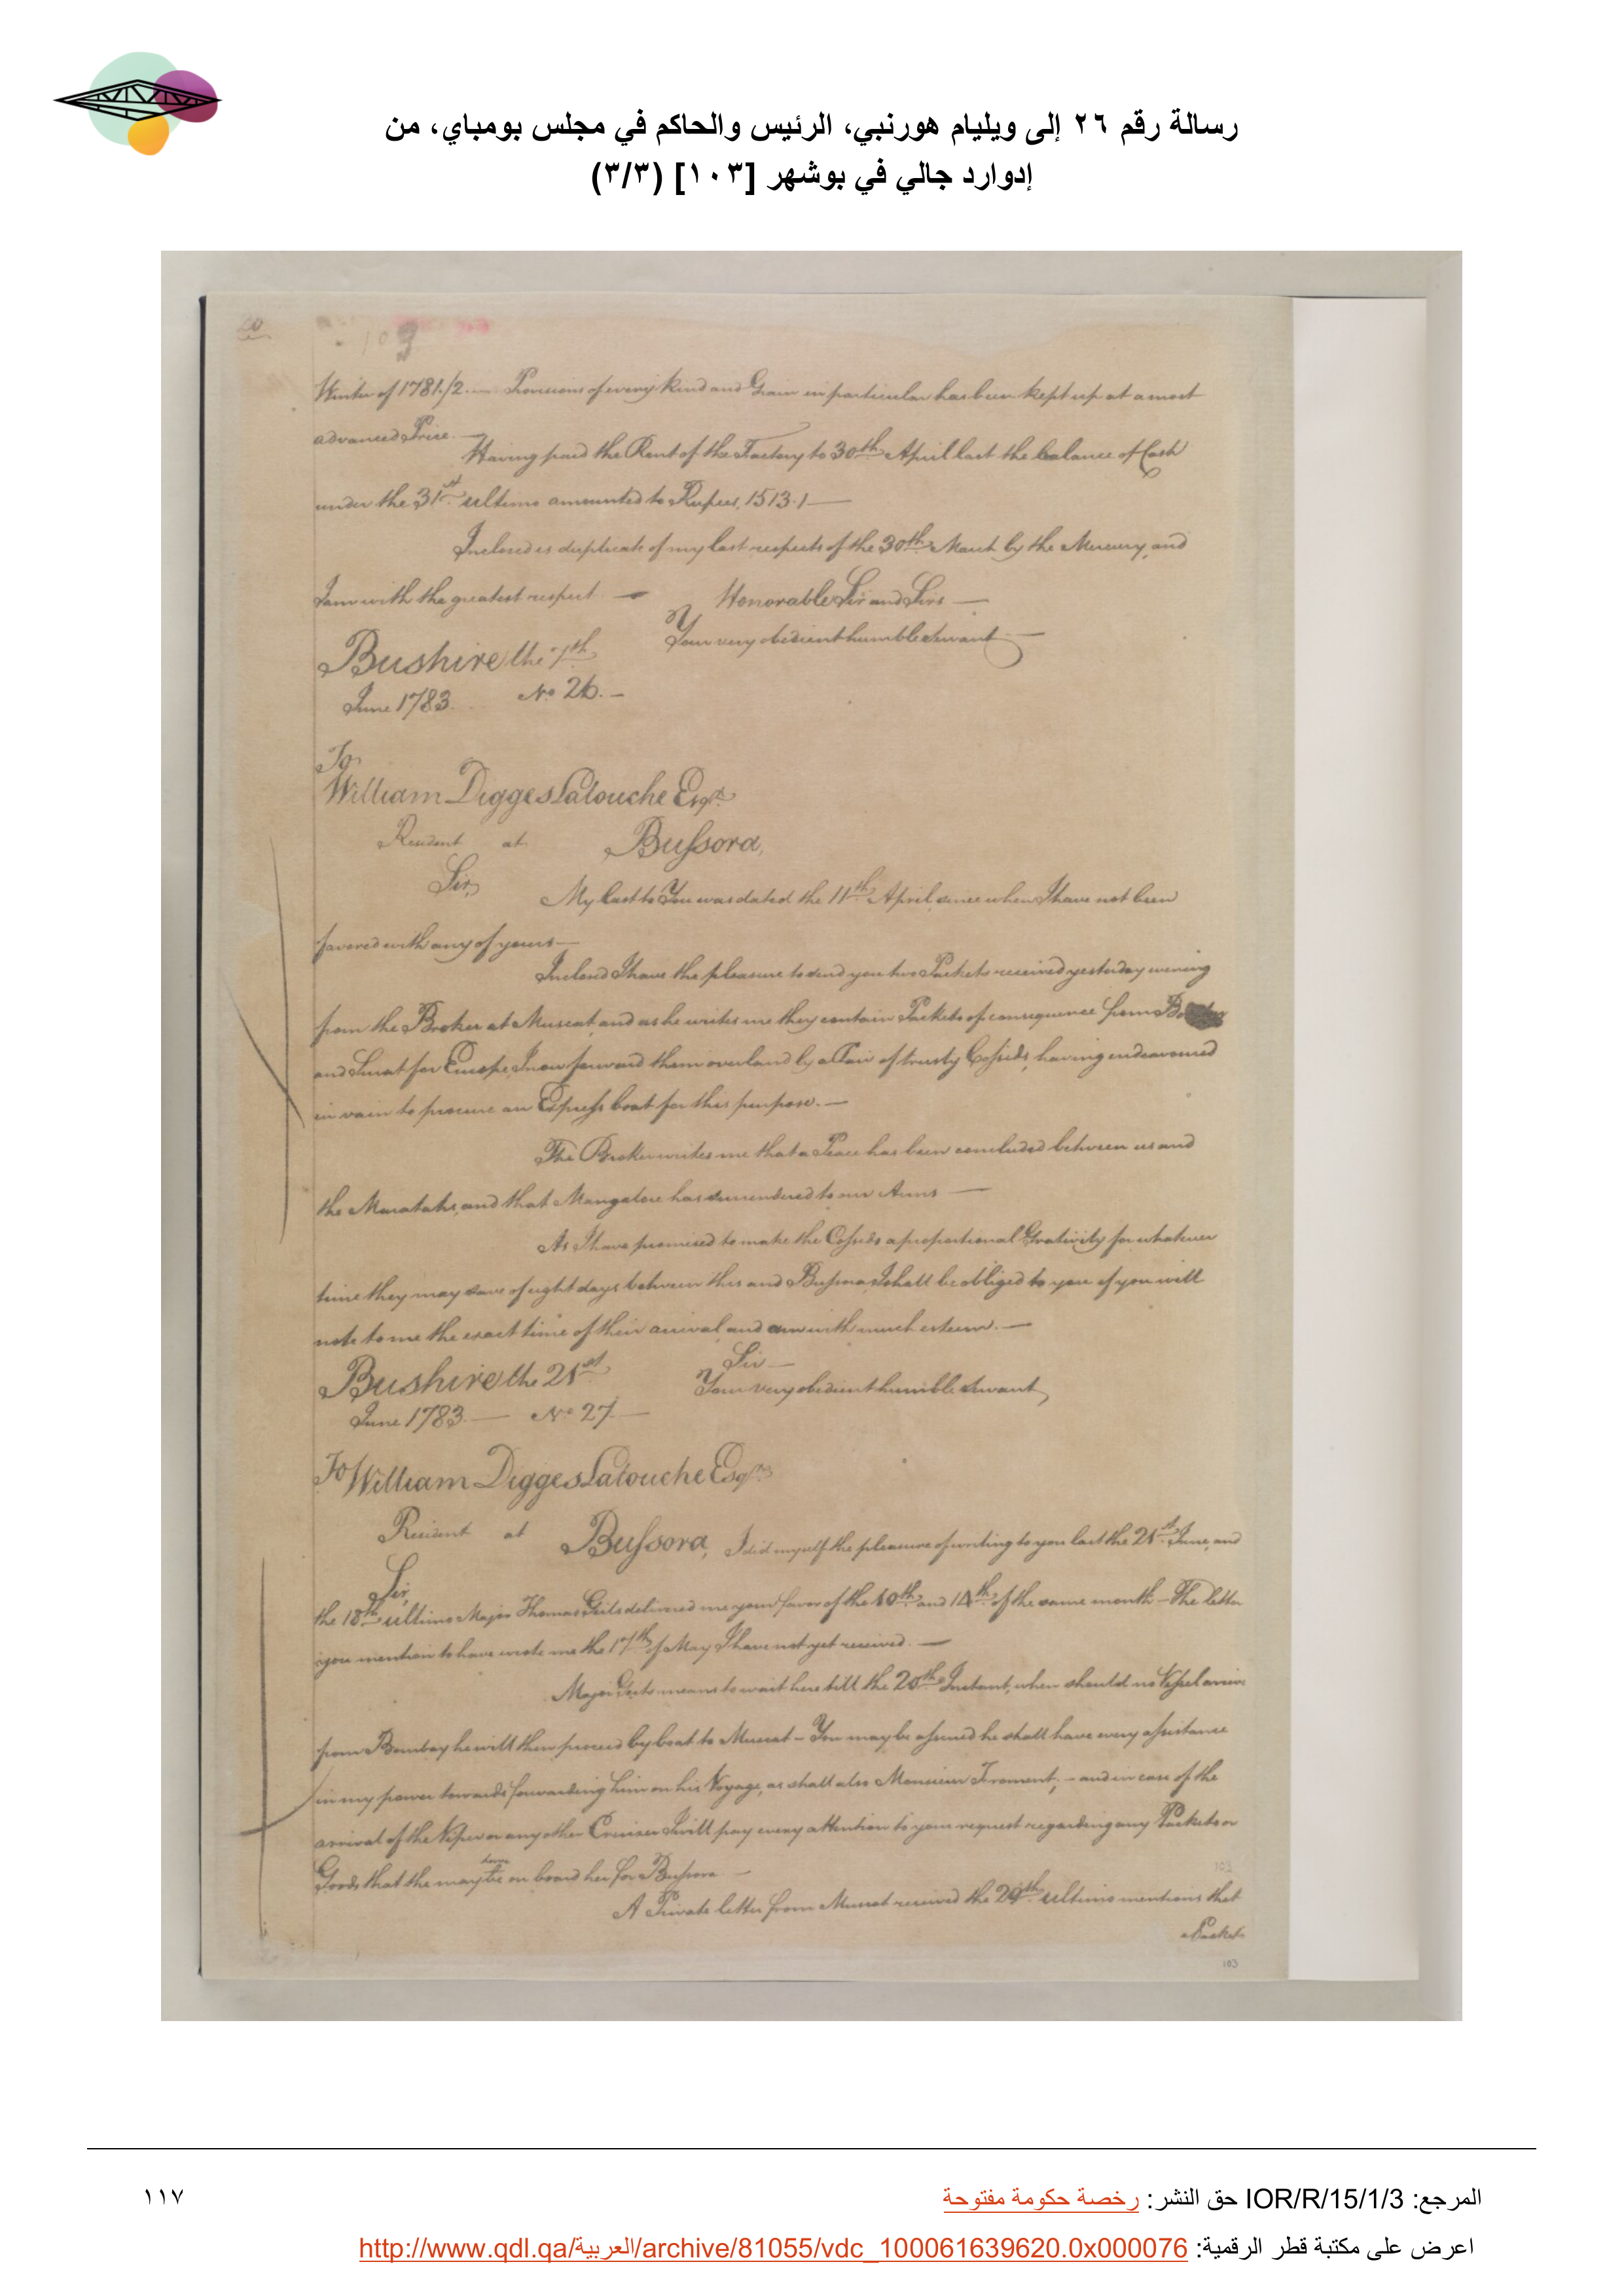 رسالة رقم ٢٦ إلى ويليام هورنبي، الرئيس والحاكم في مجلس بومباي، من
إدوارد جالي في بوشهر [١٠٣] (٣/٣)
60
103
Winter of 1781/2.— Provisions of every kind and Grain in particular has been kept up at a most
advanced Price.—
Having paid the Rent of the Factory to 30th April last the balance of Cash
under the 31st ultimo amounted to Rupees, 1513.1—
Inclosed is duplicate of my last respects of the 30th March by the Mercury, and
I am with the greatest respect — Honorable Sir and Sirs —
Your very obedient humble Servant.—
Bushire the 7th
June 1783. No 26.—
To
William Digges Latouche Esqr.
Resident at Bussora,
Sir, My last to You was dated the 11th April since when I have not been
favored with any of yours—
Inclosed I have the pleasure to send you two Packets received yesterday evening
from the Broker at Muscat, and as he writes me they contain Packets of consequence from
and Surat for Europe, I now forward them overland by a Pair of trusty Cossids, having endeavoured
in vain to procure an Express boat for this purpose.—
The Broker writes me that a Peace has been concluded between us and
the Marattahs, and that Mangalore has surrendered to our Arms —
As I have promised to make the Cossids a proportional Grativity for whatever
time they may save of eight days between this and Bussora, I shall be obliged to you if you will
note to me the exact time of their arrival, and am with much esteem.—
Sir—
Bushire the 21st Your very obedient humble Servant,
June 1783.— No 27.—
To William Digges Latouche Esqr.
Resident at Bussora, I did myself the pleasure of writing to you last the 21st June, and
Sir,
the 18th ultimo Major Thomas Geils delivered me your favor of the 10th and 14th of the same month—The letter
you mention to have wrote me the 17th of May I have not yet received.—
Major Geils means to wait here till the 20th Instant, when should no Vessel arrive
from Bombay he will then proceed by boat to Muscat— You may be assured he shall have every assistance
in my power towards forwarding him on his Voyage, as shall also Monsieur Froment;—and in case of the
arrival of the Viper or any other Cruizer I will pay every attention to your request regarding any Packets or
Goods that the may be on board her for Bussora —
A Private letter from Muscat received the 29th ultimo mentions that
a Packet
103
103
المرجع: IOR/R/15/1/3 حق النشر: رخصة حكومة مفتوحة
١١٧
اعرض على مكتبة قطر الرقمية: http://www.qdl.qa/العربية/archive/81055/vdc_100061639620.0x000076